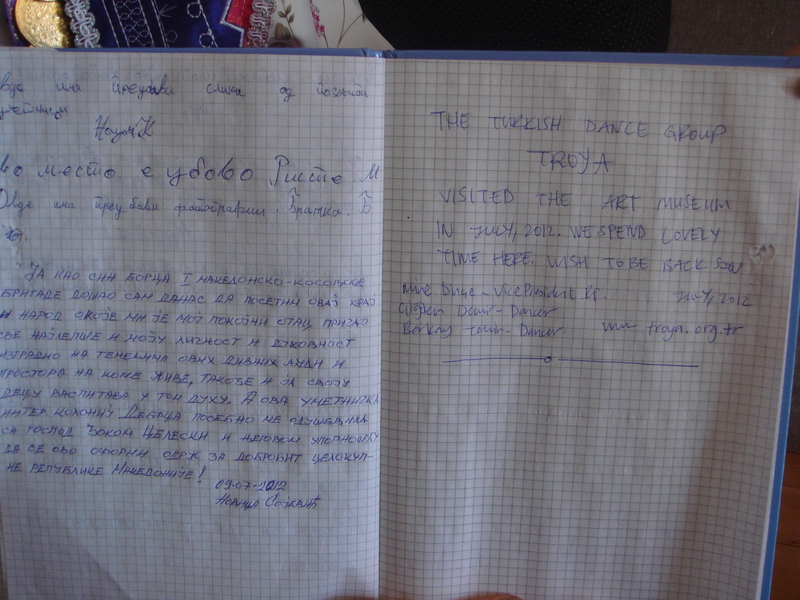 има преубави слики од познати
уметници
Наум К
во место е убово Ристе. М
Овде има преубави фотографии. Братка. Б
ЈА КАО СИН БОРЦА I МАКЕДОНСКО-КОСОВСКЕ
БРИГАДЕ ДОШАО САМ ДАНАС ДА ПОСЕТИМ ОВАЈ КРАЈ
И НАРОД ОКОЈЕ МИ ЈЕ МОЈ ПОКОЈНИ ОТАЦ ПРИЧАО
СВЕ НАЈЛЕПШЕ И МОЈУ ЛИЧНОСТ И ДУХОВНОСТ
ИЗГРАДИО НА ТЕМЕЉИМА ОВИХ ДИВНИХ ЉУДИ И
ПРОСТОРА НА КОМЕ ЖИВЕ, ТАКОЂЕ И ЈА СВОЈУ
ДЕЦУ ВАСПИТАВА У ТОМ ДУХУ. А ОВА УМЕТНИЧКА
ИНТЕР КОЛОНИЈ ДЕБРЦА ПОСЕБНО МЕ ОДУШЕВИЛА
СА ГОСПОД. ЂОКОМ ЦЕЛЕСКИ И ЊЕГОВОМ УПОРНОШЋУ
ДА СЕ ОВО ОФОРМИ ОДРЖ ЗА ДОБРОБИТ ЦЕЛОКУП-
НЕ РЕПУБЛИКЕ МАКЕДОНИЈЕ!
09.07-2012
НОВИЦА
THE TURKISH DANCE GROUP
TROYA
VISITED THE ART MUSEUM
IN JULY, 2012. WE SPEND LOVELY
TIME HERE. WISH TO BE BACK SOON
Mine Vice President JULY, 2012
Demir - Dancer
Berkay - Dancer www.troya.org.tr